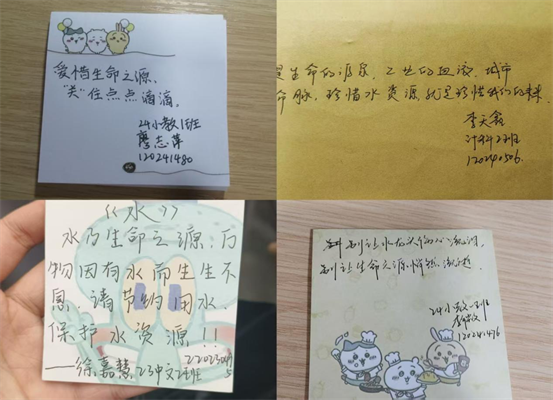 爱惜生命之源,
“关”住点点滴滴。
24小教1班
廖志萍
120241480
是生命的源泉、工业的血液、城市
命脉,珍惜水资源就是珍惜我们的未来
李天鑫
计科22班
120240506.
《水》
水乃生命之源,万
物因有水而生生不
息.请节约用水.
保护水资源!!
——徐嘉慧 23中文2班
别让水
别让生命之源悄然流逝.
24小教一班
120241476